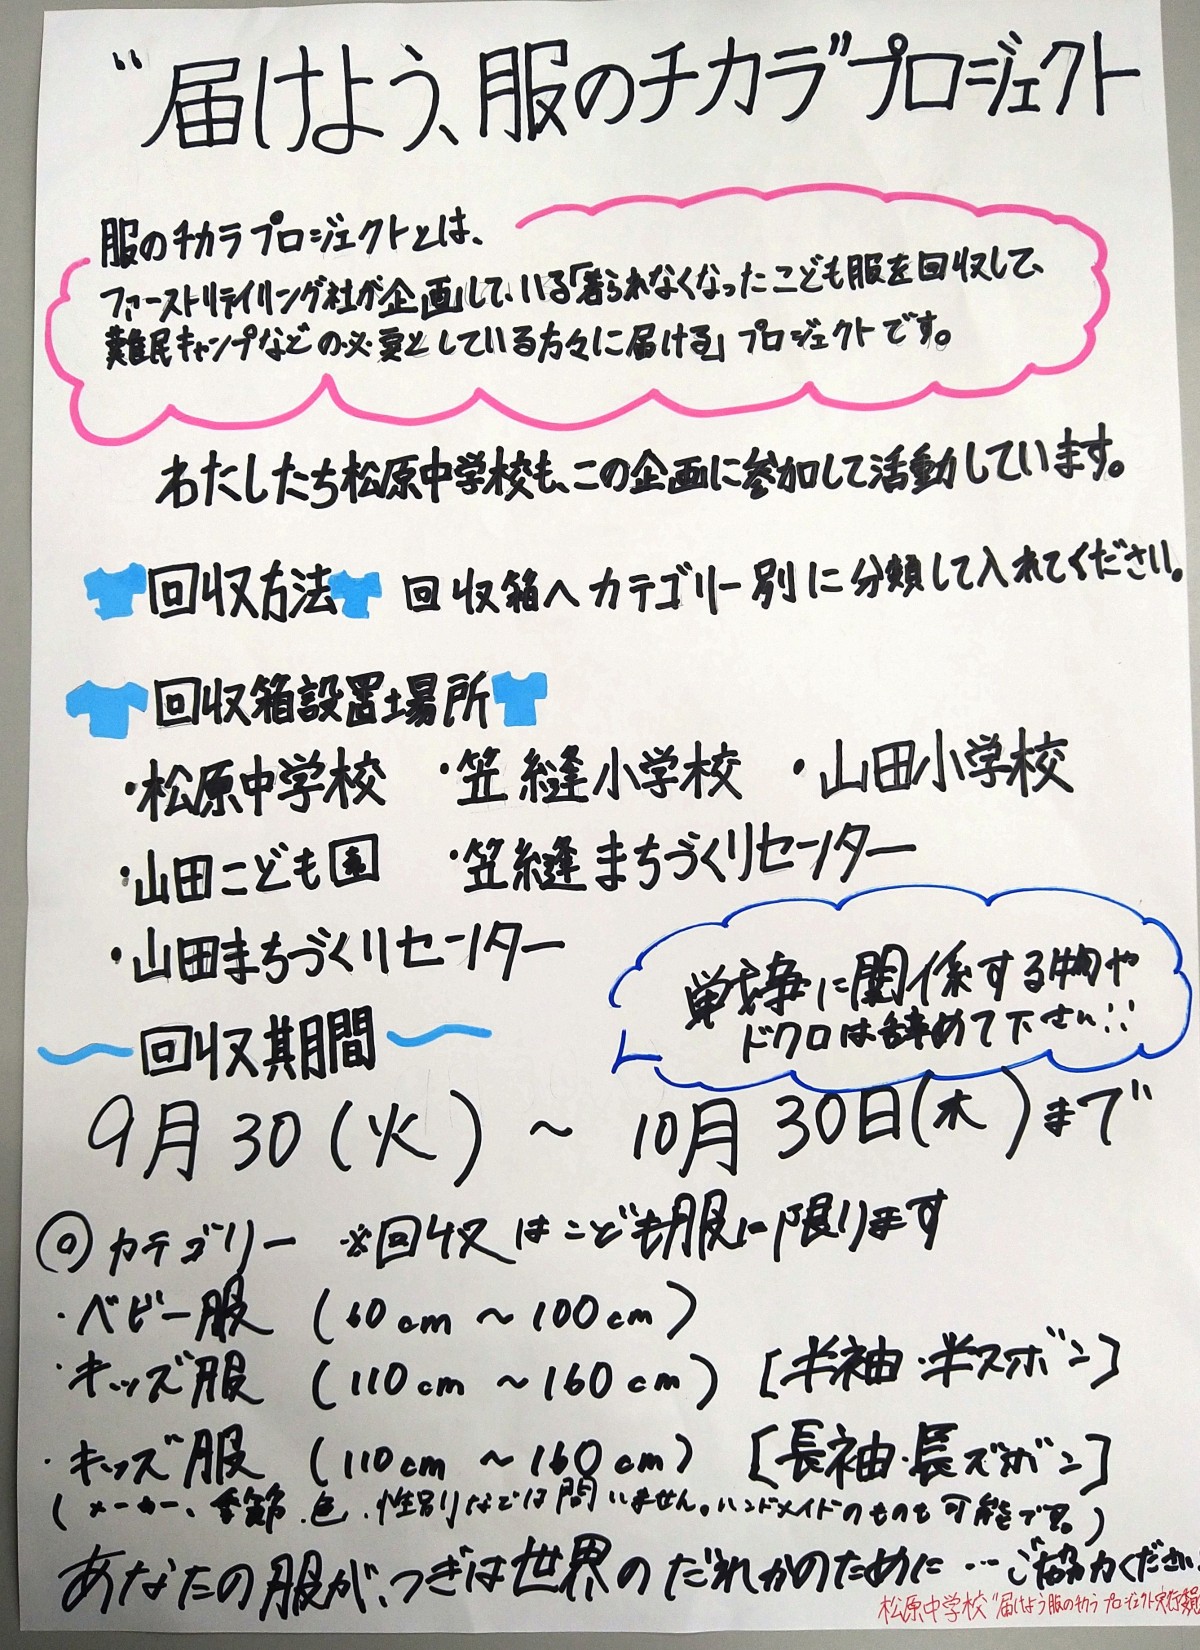 “届けよう、服のチカラ”プロジェクト
服のチカラプロジェクトとは、
ファーストリテイリング社が企画している「着られなくなったこども服を回収して、
難民キャンプなどの必要としている方々に届ける」プロジェクトです。
わたしたち松原中学校も、この企画に参加して活動しています。
回収方法 回収箱へカテゴリー別に分類して入れてください。
回収箱設置場所
・松原中学校 ・笠縫小学校 ・山田小学校
・山田こども園 ・笠縫まちづくりセンター
・山田まちづくりセンター
戦争に関係する物や
ドクロは辞めて下さい!!
〜回収期間〜
9月30(火)～10月30日(木)まで
◎カテゴリー ※回収はこども服に限ります
・ベビー服 (60cm～100cm)
・キッズ服 (110cm～160cm) [半袖・半ズボン]
・キッズ服 (110cm～160cm) [長袖・長ズボン]
(メーカー、季節、色、性別などは問いません。ハンドメイドのものも可能です。)
あなたの服が、つぎは世界のだれかのために…ご協力ください
松原中学校“届けよう服のチカラプロジェクト実行